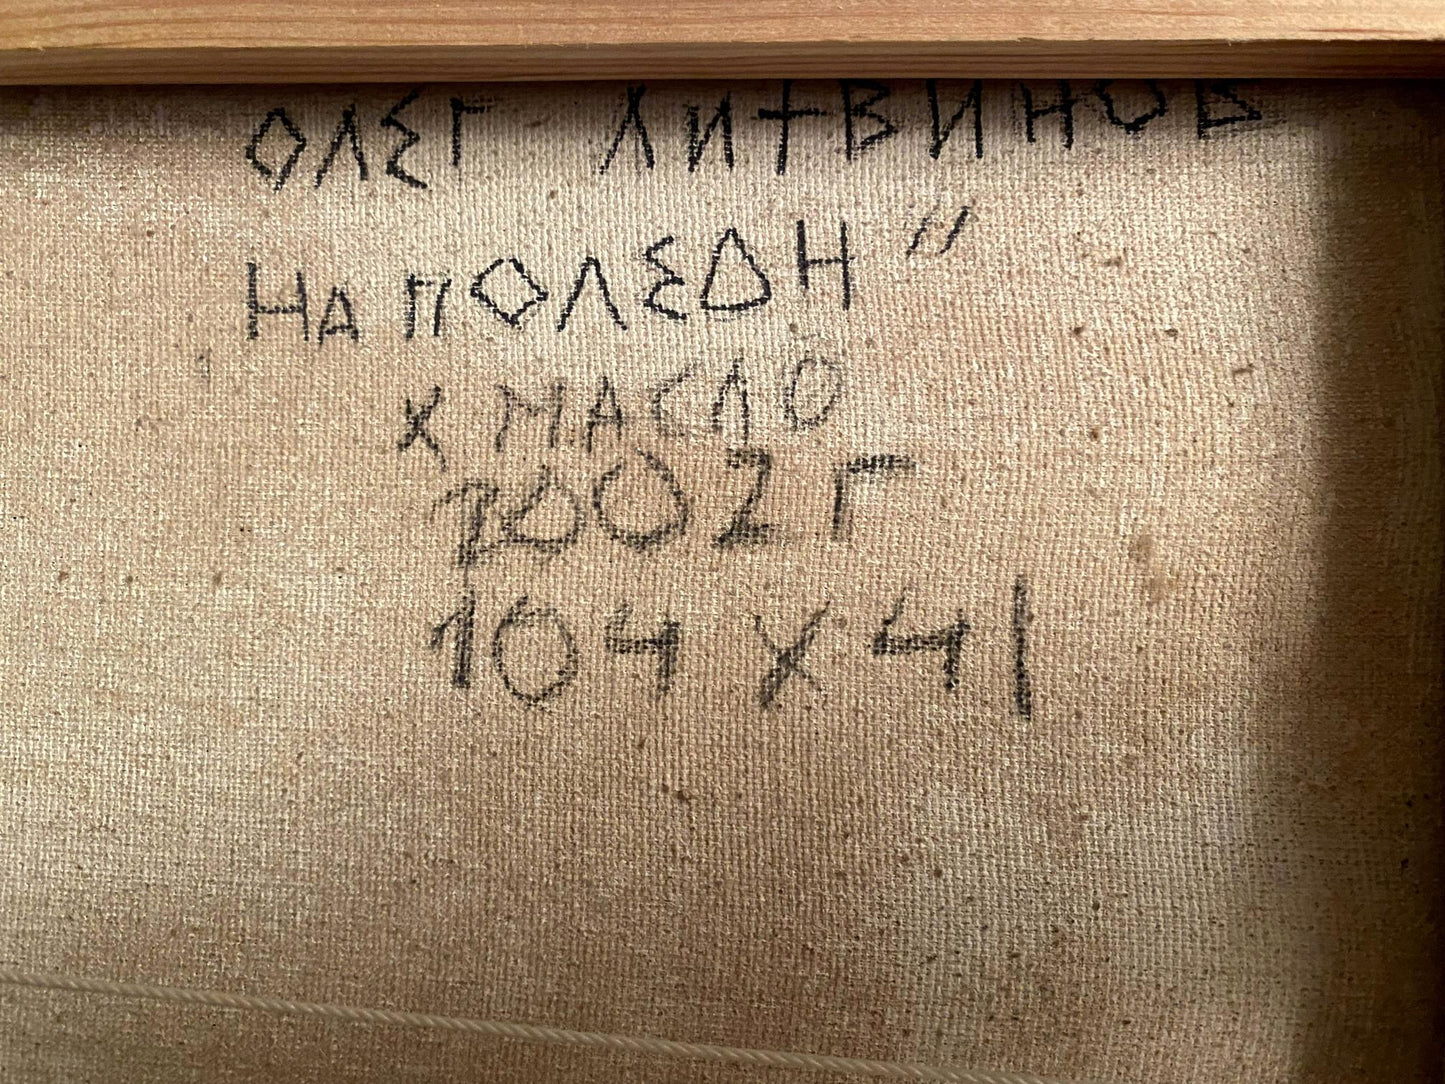 ОЛЕГ ЛИТВИНОВ
НАПОЛЕОН"
Х МАСЛО
2002 Г
104 X 41